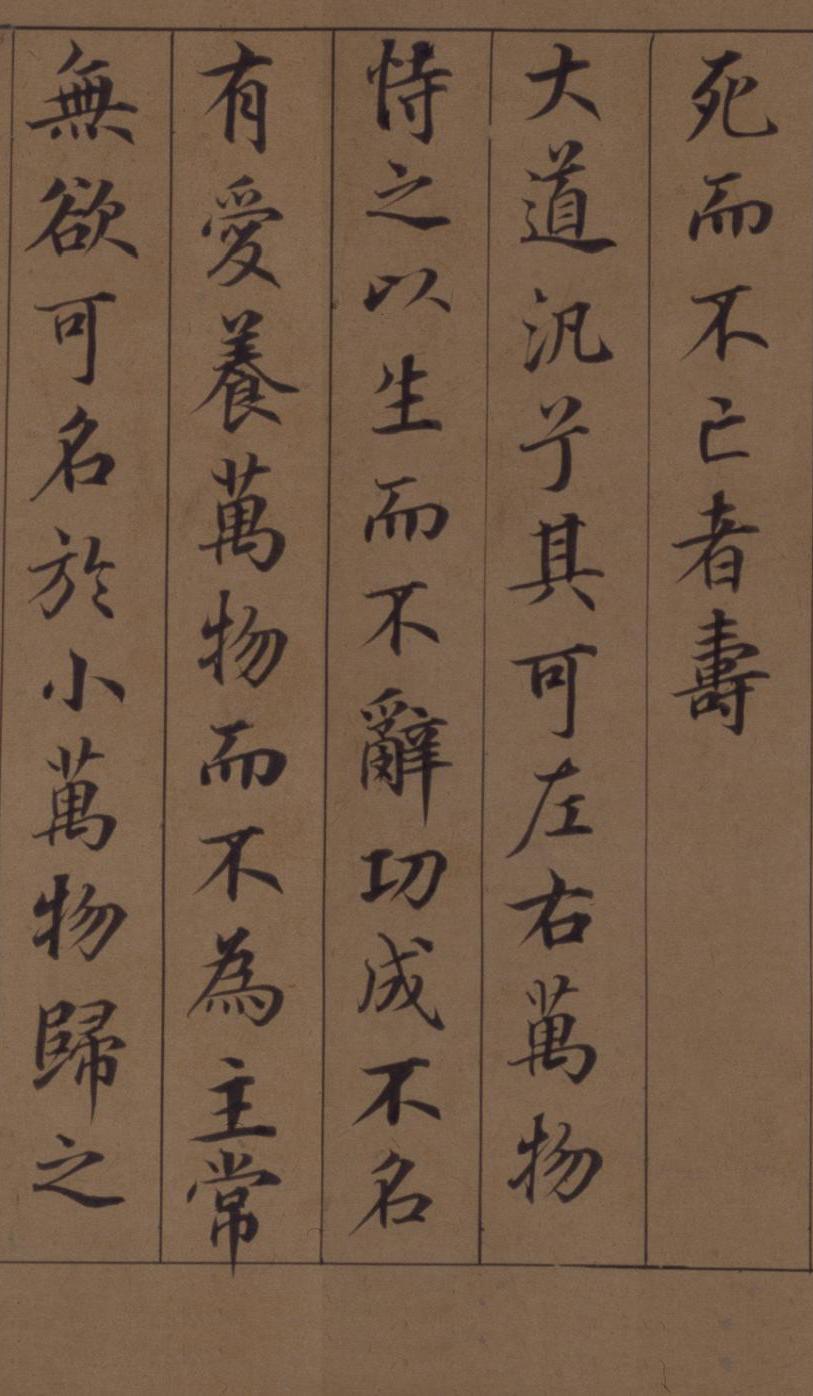 死而不亡者壽
大道汎兮其可左右萬物
恃之以生而不辭功成不名
有愛養萬物而不為主常
無欲可名於小萬物歸之